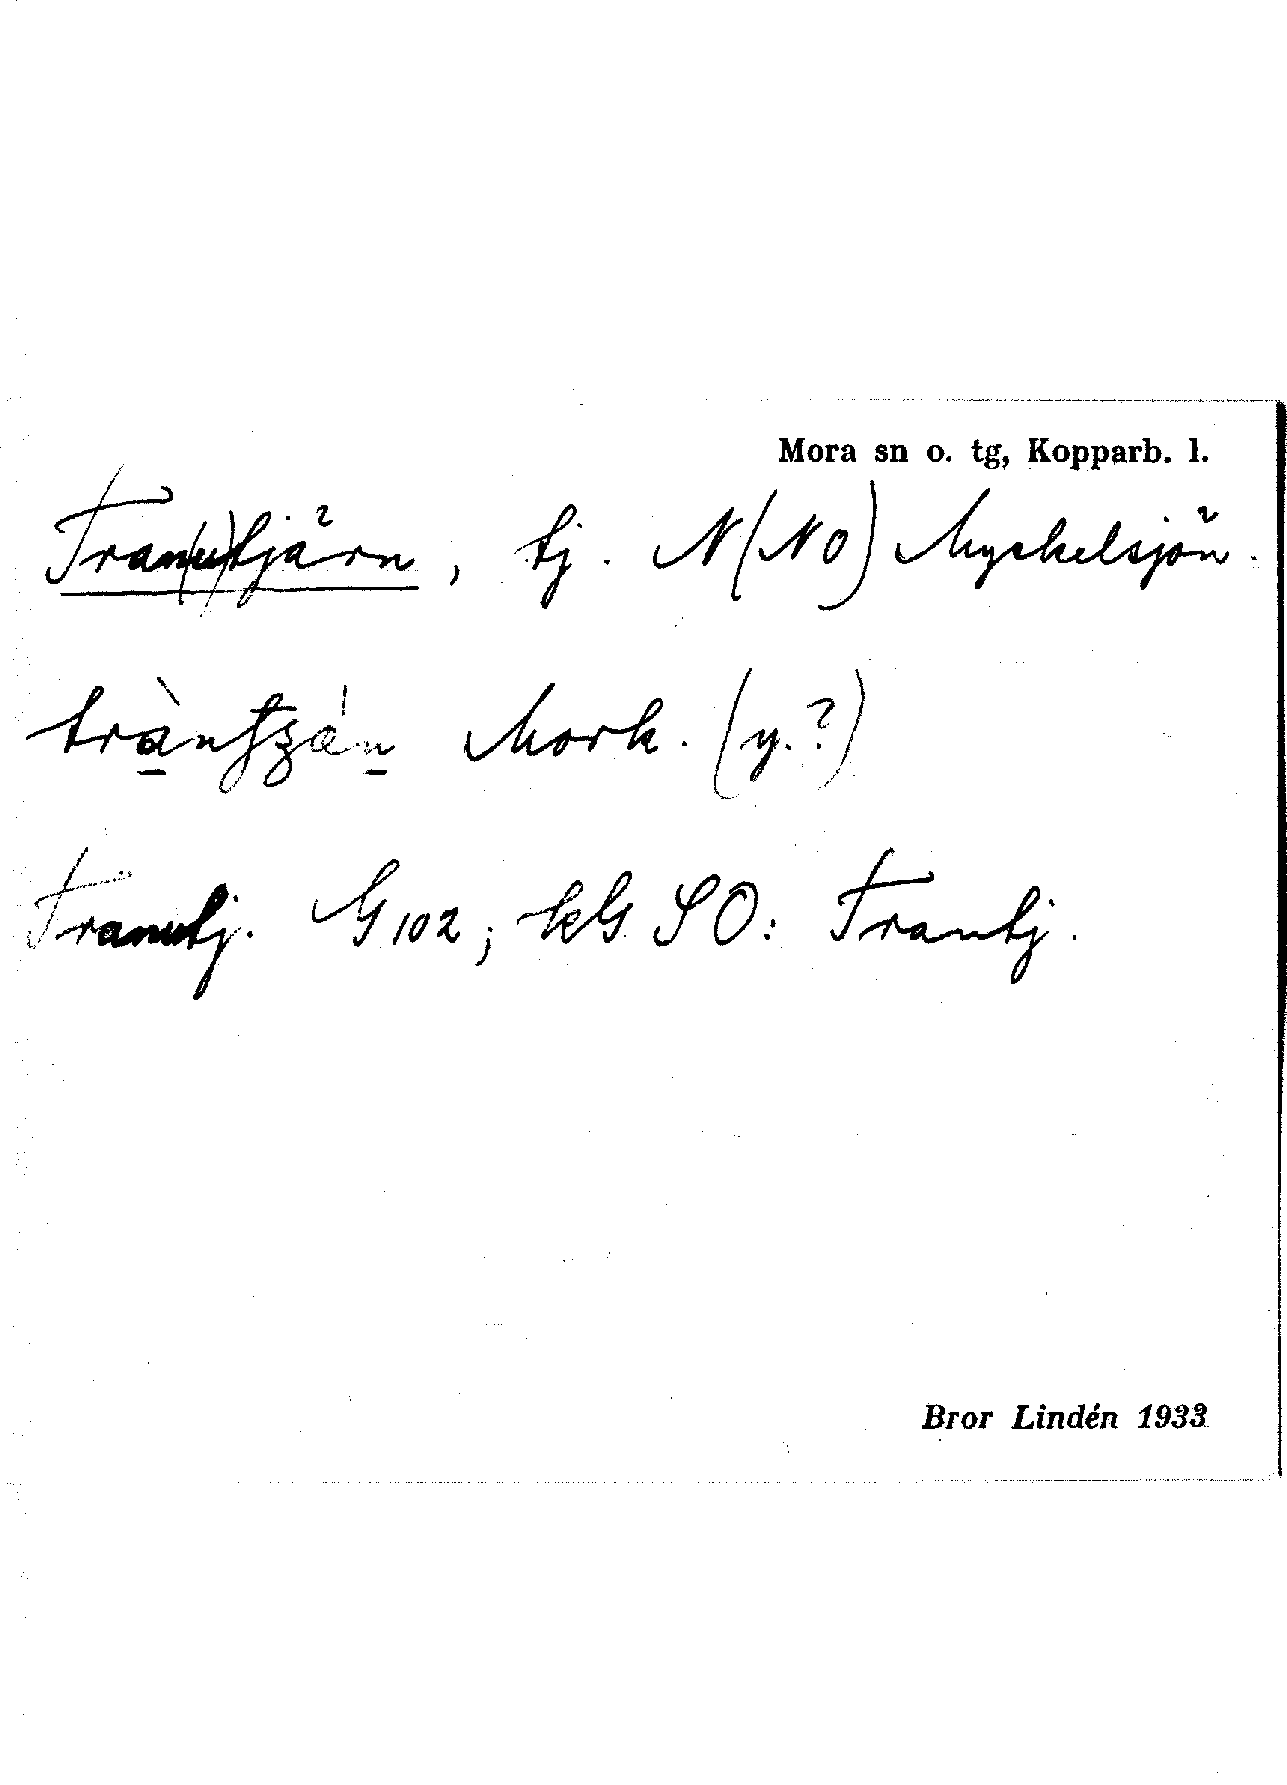 Mora sn o. tg, Kopparb. l.
Tran(u)tjärn, tj. N(NO) Myckelsjön.
Mork. (y.?)
Tranutj. G 102; kG SO: Trantj.
Bror Lindén 1933